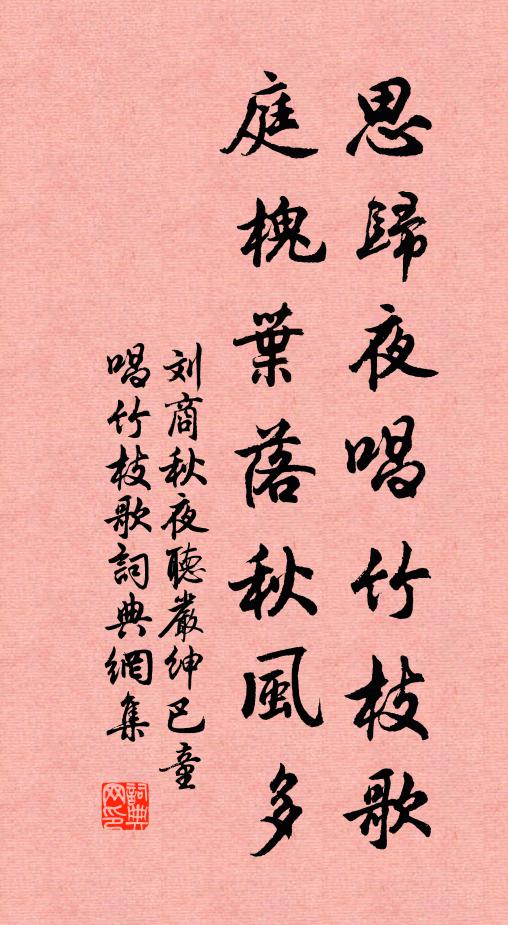 思歸夜唱竹枝歌
庭槐葉落秋風多
刘商秋夜聽嚴紳巴童
唱竹枝歌詞典網集
詞典
网印